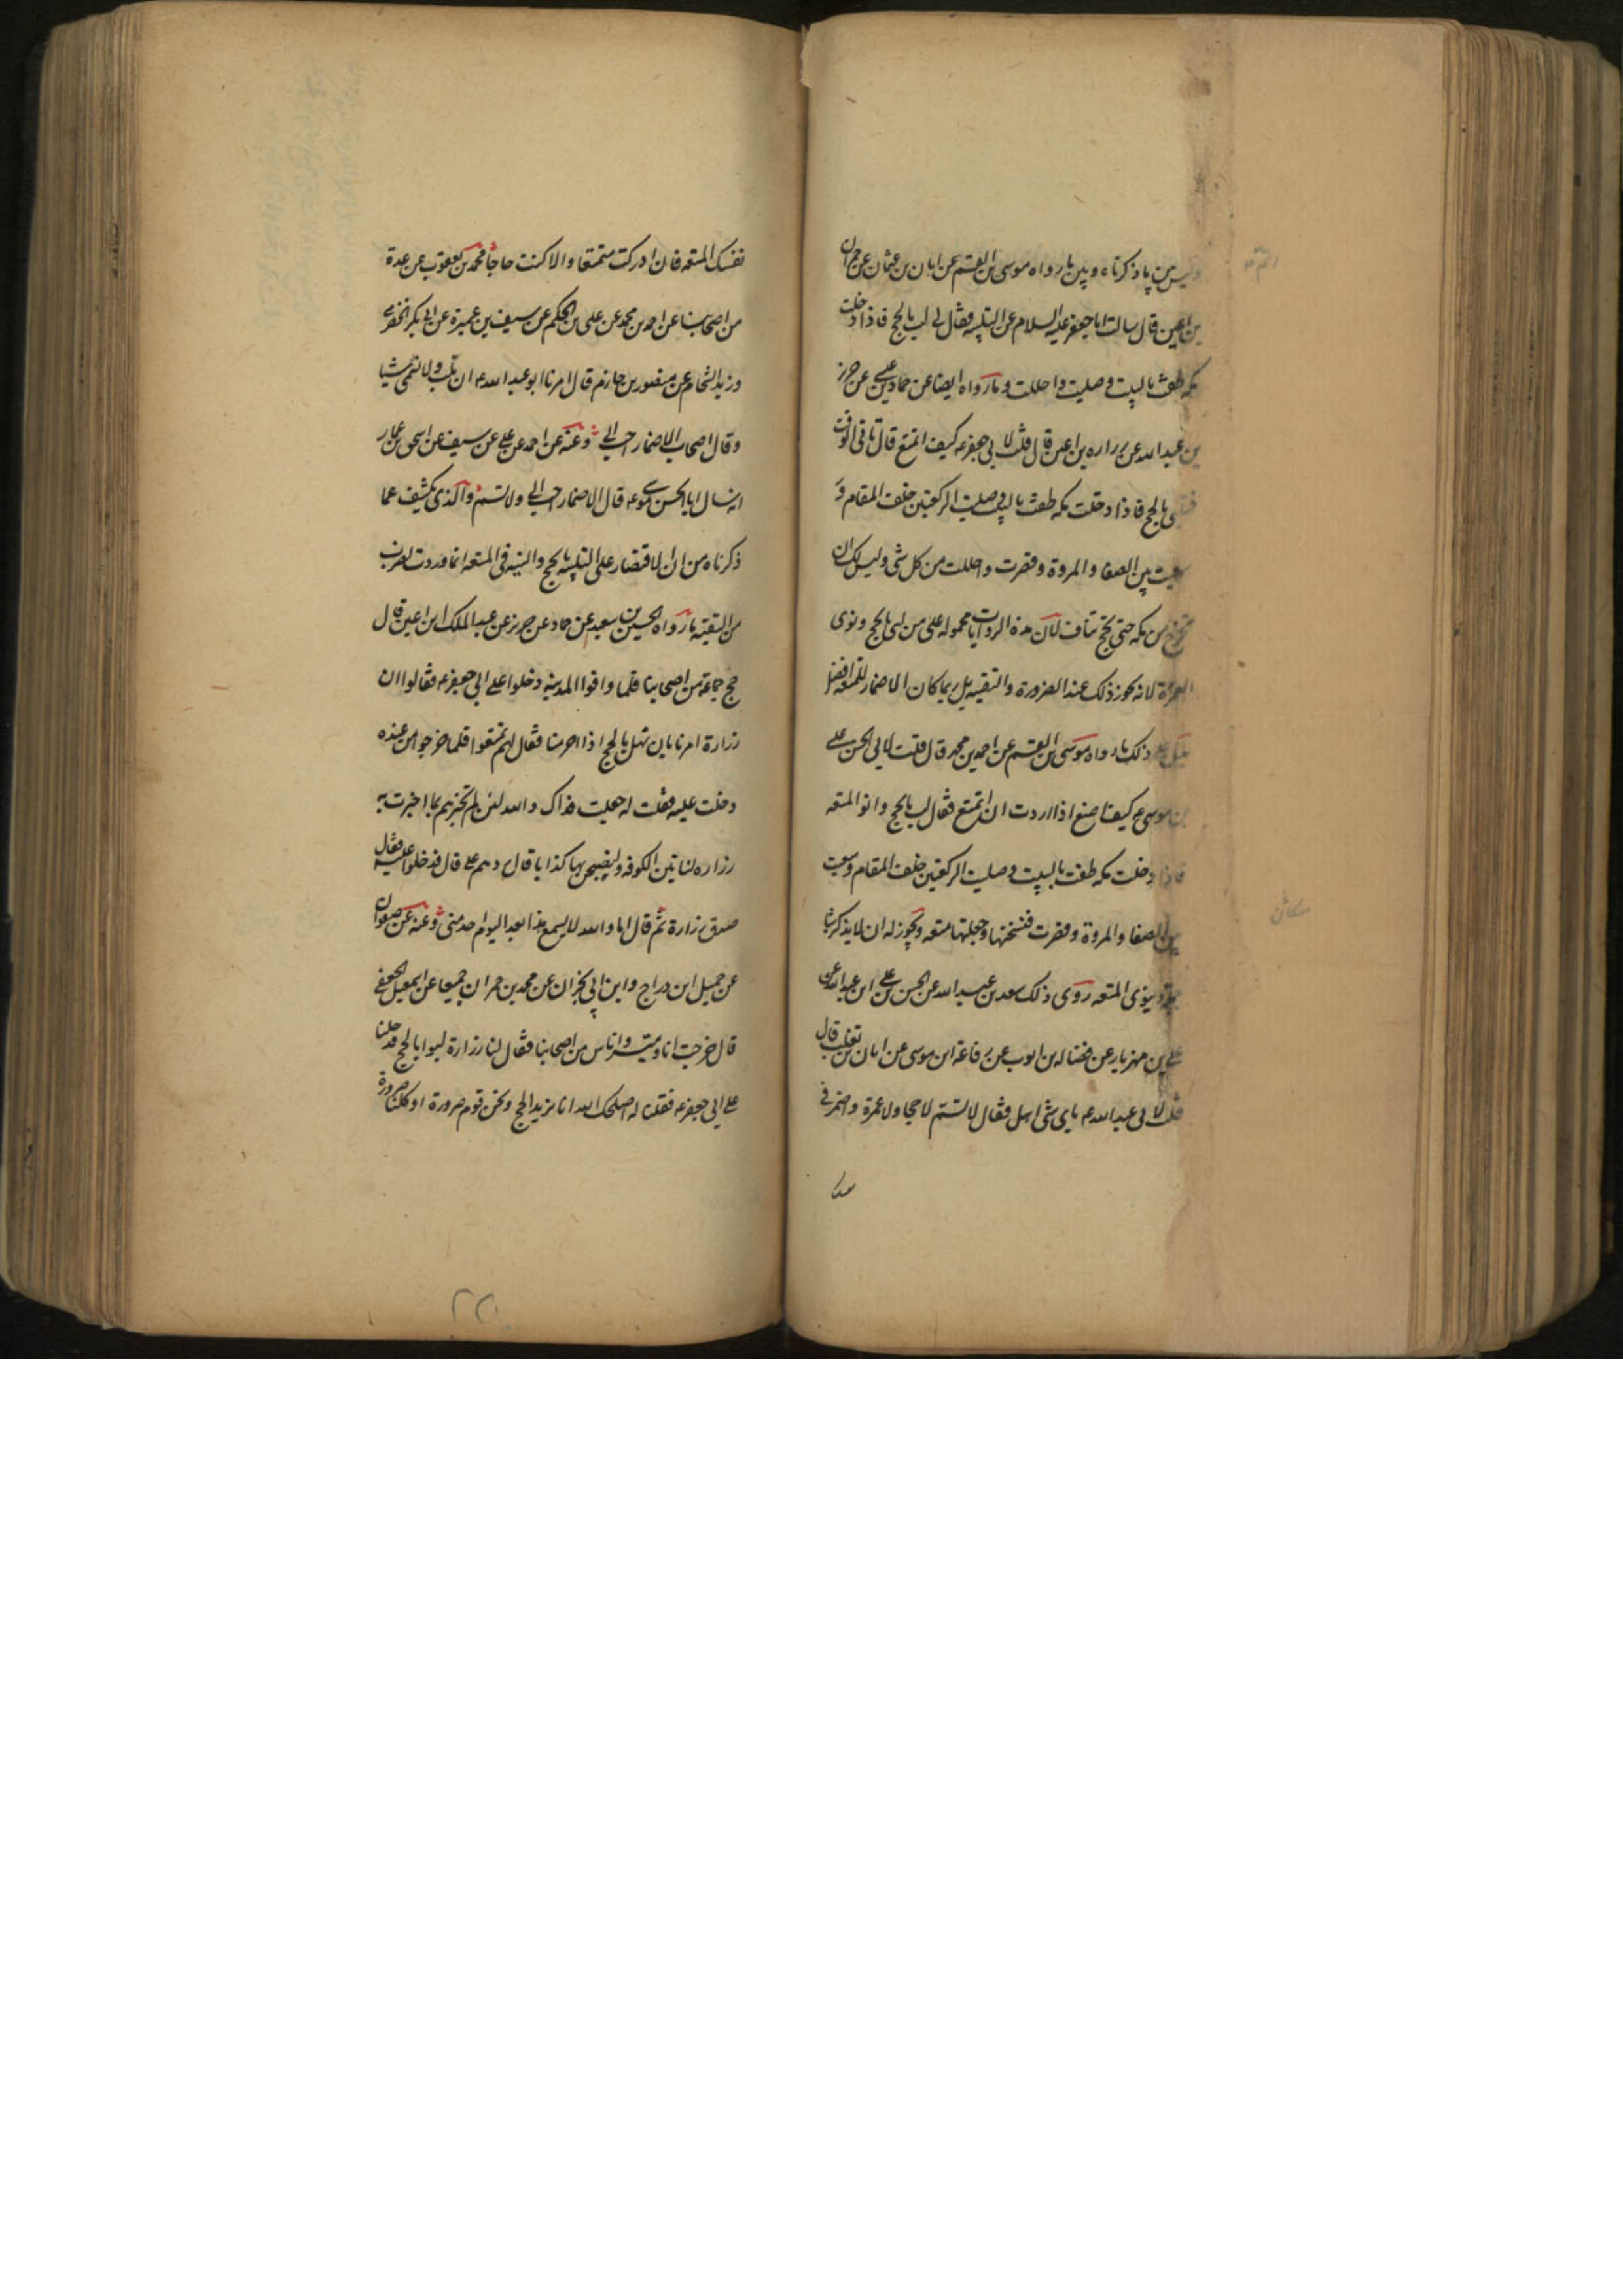 وليس بين ما ذكرناه وبين ما رواه موسى بن القسم عن ابان بن عثمان عن حمران
بن اعين قال سالت ابا جعفر عليه السلام عن التلبيه فقال لى لب بالحج فاذا دخلت
مكه طفت بالبيت وصليت واحللت وما رواه ايضا عن حماد بن عيسى عن حريز
بن عبد الله عن زراره بن اعين قال قلت لابى جعفر ع كيف اتمتع قال تاتى الوقت
فتلبى بالحج فاذا دخلت مكه طفت بالبيت وصليت الركعتين خلف المقام و
سعيت بين الصفا والمروة وقصرت واحللت من كل شى وليس لك ان
تخرج من مكه حتى تحج تناف لان هذه الروايات محموله على من لبى بالحج ونوى
العمرة لانه يجوز ذلك عند الضرورة والتقيه بل ربما كان الاضمار للمتعه افضل
يدل على ذلك ما رواه موسى بن القسم عن احمد بن محمد قال قلت لابى الحسن على
بن موسى ع كيف اصنع اذا اردت ان اتمتع فقال لب بالحج وانو المتعه
فاذا دخلت مكه طفت بالبيت وصليت الركعتين خلف المقام وسعيت
بين الصفا والمروة وقصرت ففسختها وجعلتها متعه ويجوز له ان لا يذكر شيا
وينوى المتعه روى ذلك سعد بن عبد الله عن الحسن بن على ابن عبد الله عن
على بن مهزيار عن فضاله بن ايوب عن رفاعة ابن موسى عن ابان بن تغلب قال
قلت لابى عبد الله ع باى شى اهل فقال لا تسم لا حجا ولا عمرة واضمر فى
نفسك المتعه فان ادركت متمتعا والا كنت حاجا محمد بن يعقوب عن عدة
من اصحابنا عن احمد بن محمد عن على بن الحكم عن سيف بن عميرة عن ابى بكر الحضرمى
وزيد الشحام عن منصور بن حازم قال امرنا ابو عبد الله ع ان نلبى ولا نسمى شيا
وقال اصحاب الاضمار احب الى وعنه عن احمد عن على عن سيف عن اسحق بن عمار
انه سال ابا الحسن موسى ع قال الاضمار احب الى ولا تسم والذى يكشف عما
ذكرناه من ان الاقتصار على التلبيه بالحج والنيه فى المتعه انما وردت لضرب
من التقيه ما رواه الحسين بن سعيد عن حماد عن حريز عن عبد الملك ابن اعين قال
حج جماعة من اصحابنا فلما وافوا المدينه دخلوا على ابى جعفر ع فقالوا ان
زرارة امرنا بان نهل بالحج اذا احرمنا فقال لهم تمتعوا فلما خرجوا من عنده
دخلت عليه فقلت له جعلت فداك والله لئن لم تخبرهم بما اخبرت به
زراره لناتين الكوفه ولنصبحن بها كذابا قال ردهم على قال فدخلوا عليه فقال
صدق زرارة ثم قال اما والله لا يسمع هذا بعد اليوم احد منى وعنه عن صفوان
عن جميل ابن دراج وابن ابى نجران عن محمد بن حمران جميعا عن اسمعيل الجعفى
قال خرجت انا وميسر واناس من اصحابنا فقال لنا زرارة لبوا بالحج فدخلنا
على ابى جعفر ع فقلنا له اصلحك الله انا نريد الحج ونحن قوم صرورة او كلنا صرورة